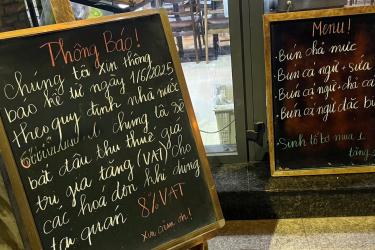 Thông Báo!
Chúng tã xin thông
báo kể từ ngày 1/6/2025
theo quy định nhà nước
chúng tã sẽ
bắt đầu thu thuế giá
trị gia tăng (VAT) cho
các hoá đơn khi dùng
tại quán 8% VAT
Xin cảm ơn!
Menu!
- Bún chả mực
- Bún cá ngừ + sứa
- Bún cá ngừ + chả cá
- Bún cá ngừ đặc bi
- Sinh tố bơ mua 1
tặng